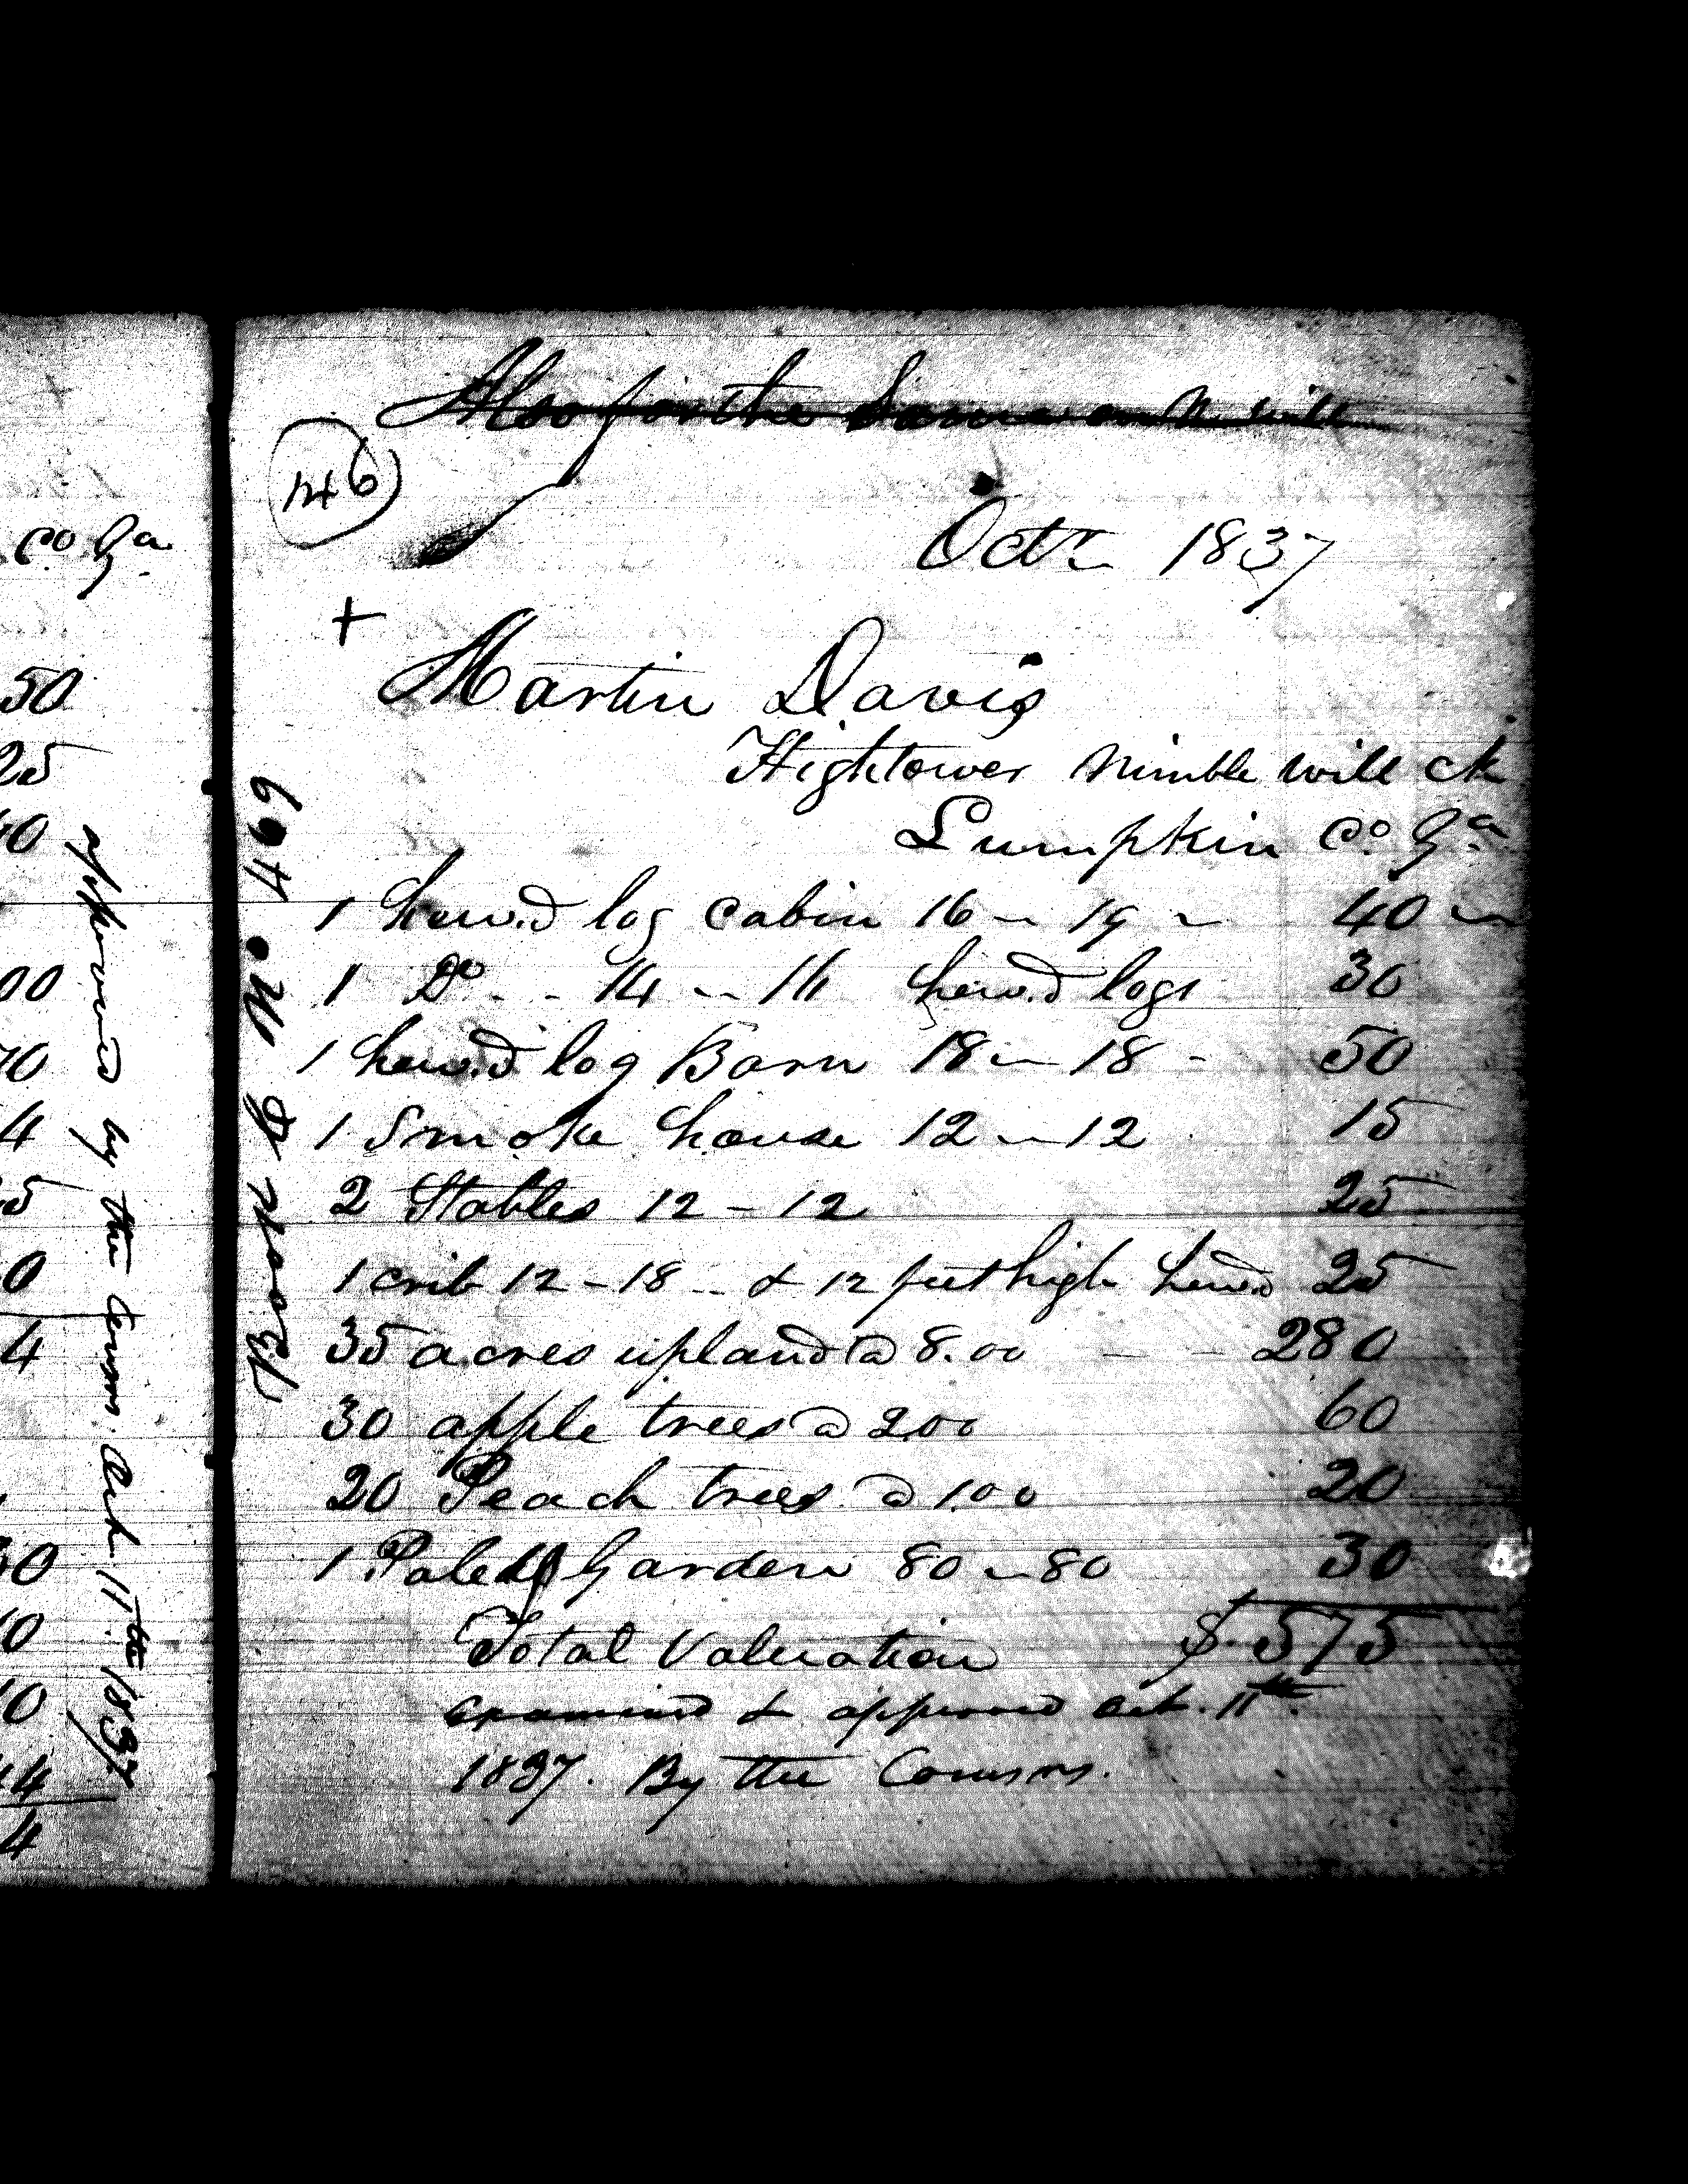 Co. Ga.
50
25
40
00
70
4
25
0
4
30
10
10
44
4
approved by the Comrs. Oct. 11th 1837
Also for the Same on N. Will
146
Octr. 1837
+
Martin Davis
Hightower Nimble Will ck
Lumpkin Co. Ga.
1 hew.d log cabin 16 - 19 - 40
1 Do - - 14 - - 16 hew.d logs 30
1 hew.d log Barn 18 - 18 - 50
1 Smoke house 12 - 12 15
2 Stables 12 - 12 25
1 crib 12 - 18 - & 12 feet high hew.d 25
35 acres upland @ 8.00 - - 280
30 apple trees @ 2.00 60
20 Peach trees @ 1.00 20
1 Paled Garden 80 - 80 30
Total Valuation $ 575
examined & approved Oct. 11th
1837. By the Comsrs.
Moor & M. 469